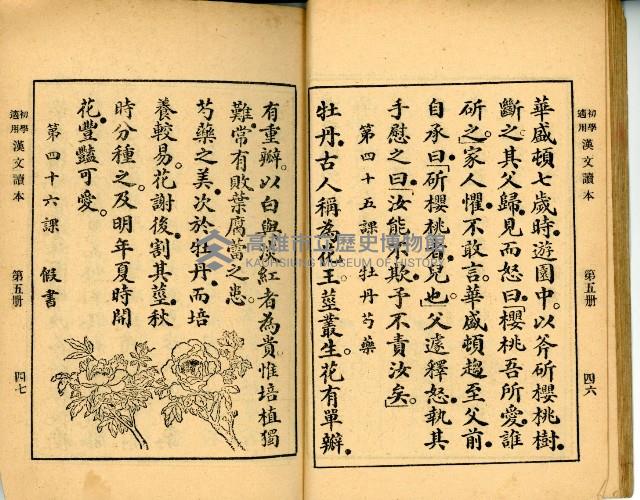 初學適用 漢文讀本 第五册 四六
華盛頓七歲時。遊園中。以斧斫櫻桃樹
斷之。其父歸。見而怒曰。櫻桃吾所愛。誰
斫之。家人懼。不敢言。華盛頓趨至父前。
自承曰。「斫櫻桃者。兒也。」父遽釋怒。執其
手慰之曰。「汝能不欺。予不責汝矣。」
第四十五課 牡丹芍藥
牡丹。古人稱為花王。莖叢生。花有單瓣。
有重瓣。以白與紅者為貴。惟培植獨
難。常有敗葉腐蕾之患。
芍藥之美。次於牡丹。而培
養較易。花謝後。割其莖。秋
時分種之。及明年夏時開
花。豐豔可愛。
第四十六課 假書
初學適用 漢文讀本 第五册 四七
高雄市立歷史博物館
KAOHSIUNG MUSEUM OF HISTORY